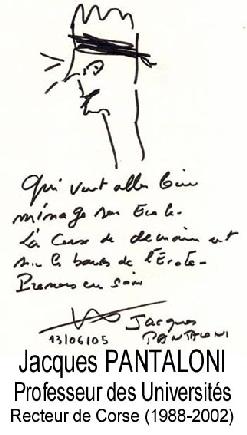 Qui veut aller loin
ménage son Ecole.
La Corse de demain est
sur les bancs de l'Ecole.
Prenons en soin
Jacques
13/06/05 PANTALONI
Jacques PANTALONI
Professeur des Universités
Recteur de Corse (1988-2002)